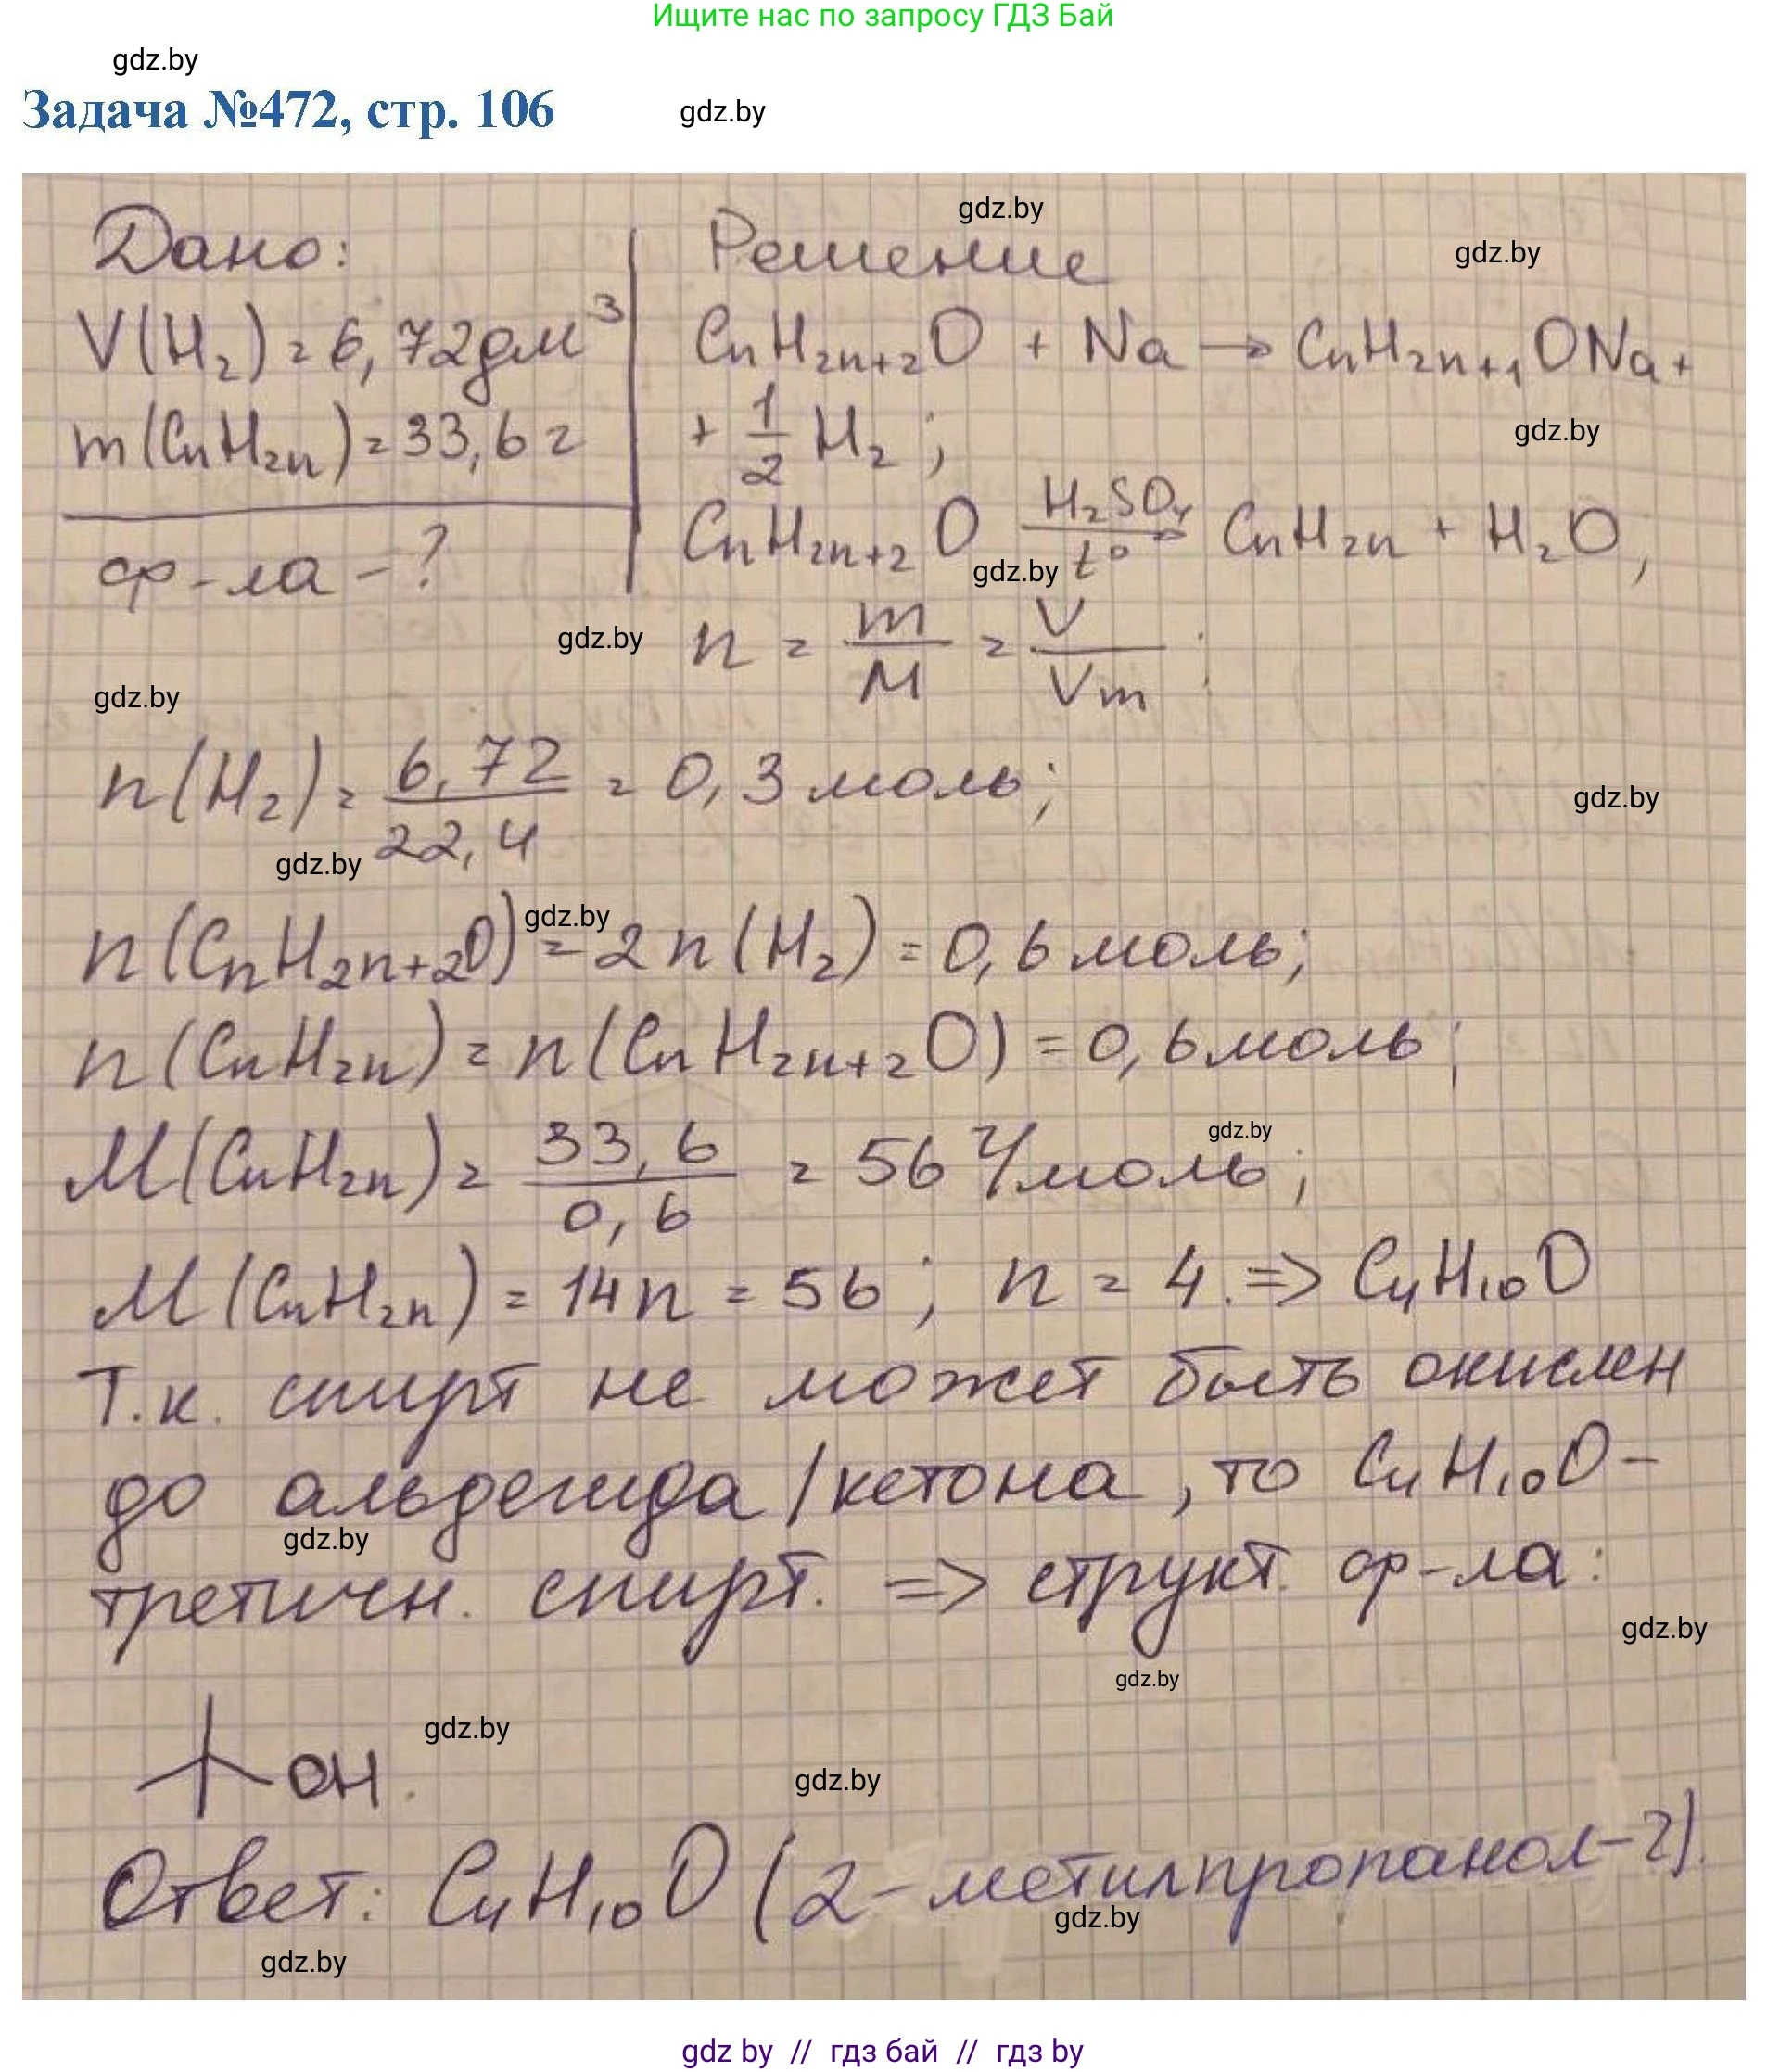 Ищите нас по запросу ГДЗ Бай
gdz.by
Задача №472, стр. 106
gdz.by
gdz.by
Дано:
Решение
gdz.by
V(H₂) = 6,72 дм³
CnH₂n₊₂O + Na → CnH₂n₊₁ONa +
m(CnH₂n) = 33,6 г
+ 1/2 H₂ ;
gdz.by
ф-ла - ?
CnH₂n₊₂O H₂SO₄ t° → CnH₂n + H₂O,
gdz.by
n = m/M = V/Vm ;
gdz.by
gdz.by
n(H₂) = 6,72/22,4 = 0,3 моль;
gdz.by
gdz.by
n(CnH₂n₊₂O) = 2n(H₂) = 0,6 моль;
gdz.by
n(CnH₂n) = n(CnH₂n₊₂O) = 0,6 моль ;
M(CnH₂n) = 33,6/0,6 = 56 г/моль ;
gdz.by
M(CnH₂n) = 14n = 56 ; n = 4. => C₄H₁₀O
Т.к. спирт не может быть окислен
до альдегида/кетона, то C₄H₁₀O -
gdz.by
третичн. спирт. => структ. ф-ла:
gdz.by
gdz.by
gdz.by
OH.
gdz.by
Ответ: C₄H₁₀O (2-метилпропанол-2).
gdz.by
gdz.by
gdz by // гдз бай // гдз by